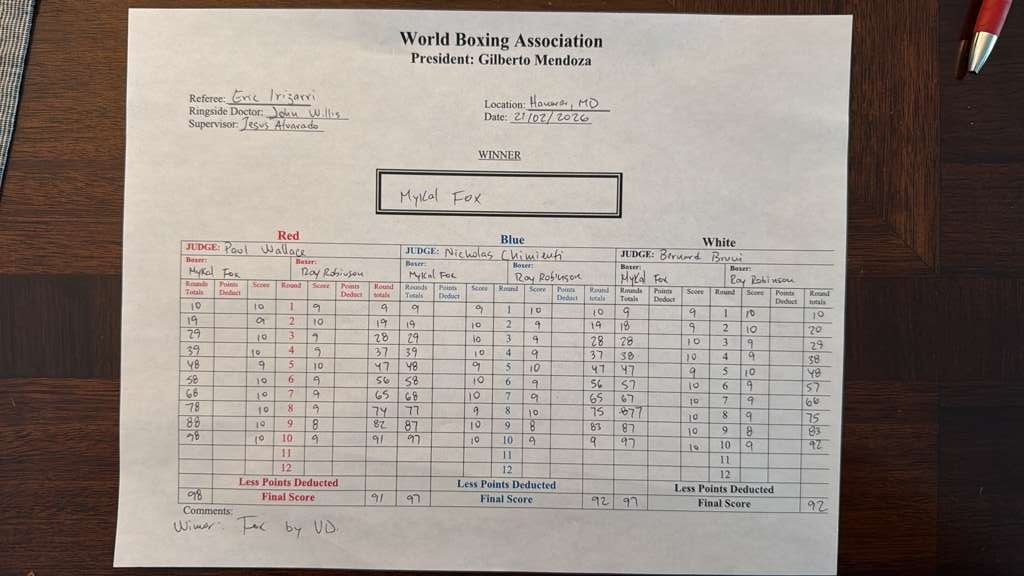 World Boxing Association
President: Gilberto Mendoza
Referee: Eric Irizarri
Ringside Doctor: John Willis
Supervisor: Jesus Alvarado
Location: Hanover, MD
Date: 21/02/2026
WINNER
Mykal Fox
Red Blue White
JUDGE: Paul Wallace JUDGE: Nicholas Chimienti JUDGE: Bernard Bruni
Boxer: Boxer: Boxer: Boxer: Boxer: Boxer:
Mykal Fox Ray Robinson Mykal Fox Ray Robinson Mykal Fox Ray Robinson
Rounds Totals Points Deduct Score Round Score Points Deduct Round totals Rounds Totals Points Deduct Score Round Score Points Deduct Round totals Rounds Totals Points Deduct Score Round Score Points Deduct Round totals
10 10 1 9 9 9 9 1 10 10 9 9 1 10 10
19 9 2 10 19 19 10 2 9 19 18 9 2 10 20
29 10 3 9 28 29 10 3 9 28 28 10 3 9 29
39 10 4 9 37 39 10 4 9 37 38 10 4 9 38
48 9 5 10 47 48 9 5 10 47 47 9 5 10 48
58 10 6 9 56 58 10 6 9 56 57 10 6 9 57
68 10 7 9 65 68 10 7 9 65 67 10 7 9 66
78 10 8 9 74 77 9 8 10 75 877 10 8 9 75
88 10 9 8 82 87 10 9 8 83 87 10 9 8 83
98 10 10 9 91 97 10 10 9 9 97 10 10 9 92
11 11 11
12 12 12
Less Points Deducted Less Points Deducted Less Points Deducted
98 Final Score 91 97 Final Score 92 97 Final Score 92
Comments:
Winner: Fox by UD.